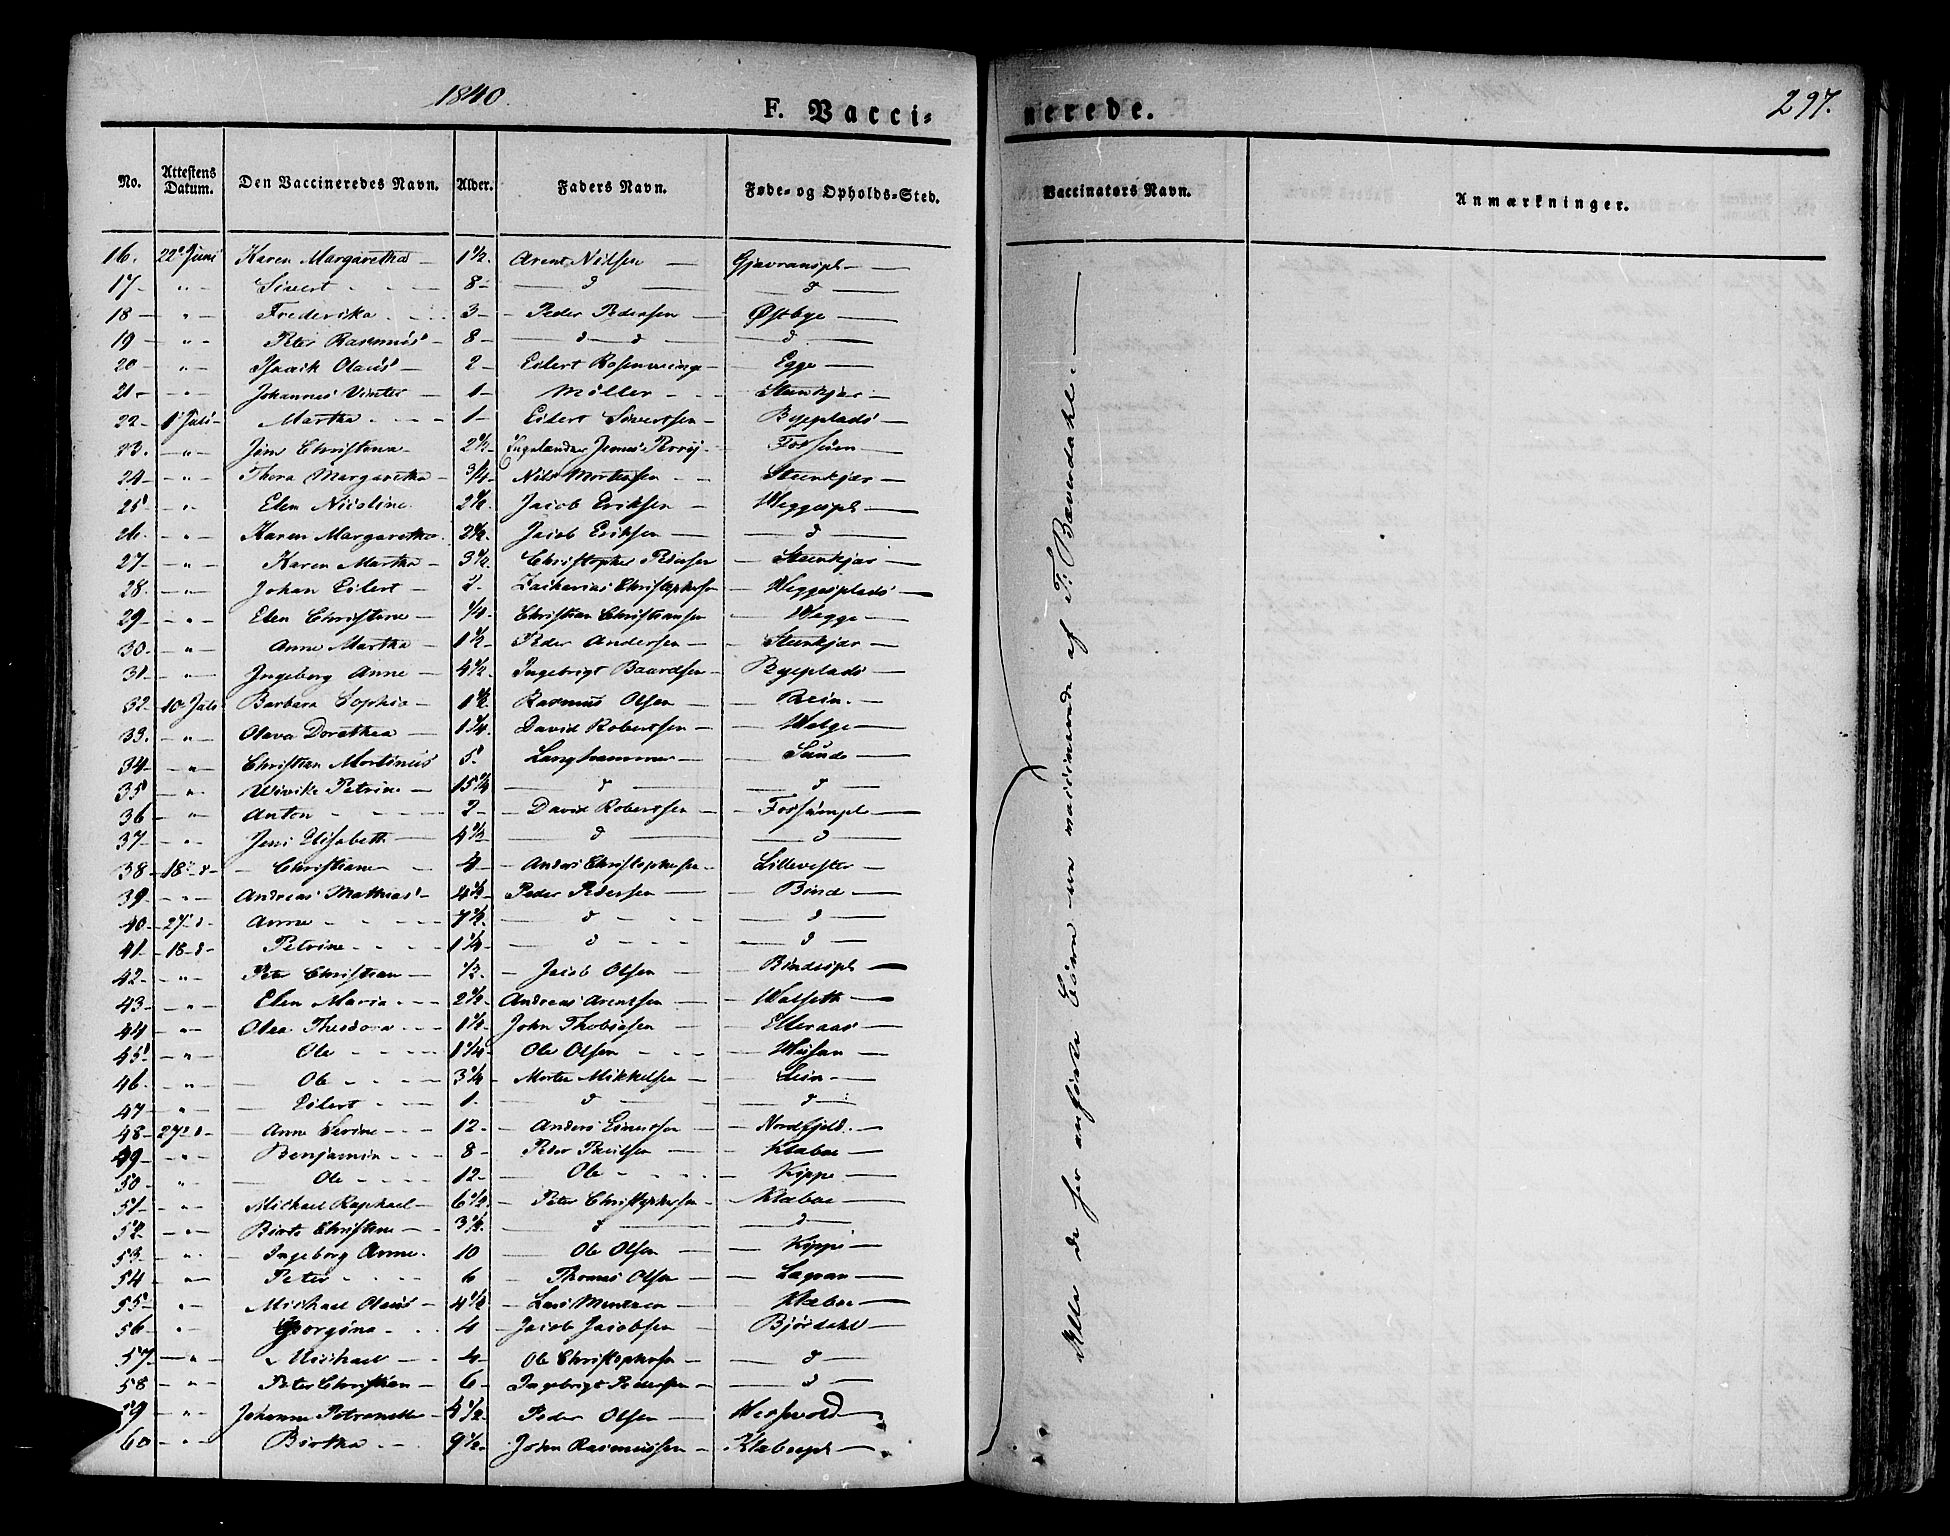 1840.
F. Vacci-
nerede.
297.
No. Attestens Datum. Den Vaccineredes Navn. Alder. Faders Navn. Føde- og Opholds-Sted. Vaccinators Navn. Anmærkninger.
16. 22d Juni Karen Margaretha 1 1/2. Arent Nilsen Gjævranspl
17 " Sivert 8 d d
18 " Frederika 3 Peder Pedersen Østbye
19 " Peter Rasmus 8 d d d
20 " Isaak Olaus 2 Eilert Rosenvinge Egge
21 " Johannes Vinter 1 Möller Steenkjær
22 1 Juli Martha 1 Eilert Sivertsen Byeplads
23. " Christina 2 1/2 Fossum
24 " Thora Margaretha 3/4 Nils Mortensen Steenkjær
25 " Elen Nicoline 2 1/2 Jacob Eriksen Weggespl
26. " Karen Margaretha 2 1/2. Jacob Eriksen d
27 " Karen Martha 3 1/2. Christopher Pedersen Steenkjær
28. " Johan Eilert 2. Zacharias Christophersen Weggesplads
29 " Elen Christine 1/4 Christian Christiansen Wegge
30 " Anne Martha 1 1/2 Peder Andersen Steenkjær
31 " Ingeborg Anne 4 1/2 Ingebrigt Baardsen Byeplads
32 10 Juli Barbara Sophia 1 1/2 Rasmus Olsen Rein.
33. " Olava Dorathea 1 1/4 David Robertsen
34 " Christian Martinus 5. Langhammer Sunde
35 " Wivike Petrine 15 3/4 d d
36 " Anton 2 David Robertsen Fossumpl
37 " Jeni Elisabeth 4 1/2 d d
38 18 d Christiane 4 Anders Christophersen Lillevester
39 " Andreas Mathias 4 1/2 Peder Pedersen Binde
40 27 d Anne 7 1/2. d d
41 18 d Petrine 1 1/4 d d
42 " Peter Christian 1/2. Jacob Olsen Bindespl
43 " Elen Maria 2 1/2 Andreas Arentsen Walseth
44 " Olea Theodora 1 1/2 John Thobiasen Elleraas
45 " Ole 1 1/4 Ole Olsen
46 " Ole 3 1/4 Morten Mikkelsen Lein
47 " Eilert 1. d d
48 27 d Anne Serine 12 Anders Einersen Nordfjeld.
49 " Benjamin 8 Peder Paulsen Klæboe
50 " Ole 12 Ole Kippe
51 " Michael Raphael 6 1/2 Peter Christophersen Klæboe
52 " Christine 3 1/2. d d
53 " Ingeborg Anne. 10 Ole Olsen Kippe
54 " Peter 6 Thomas Olsen
55 " Michael Olaus 4 1/2 Lars Klæboe
56 " Georgina 4 Jacob Jacobsen Bjørdahl
57 " Michael 4 Ole Christophersen d
58 " Peter Christian 6 Ingebrigt Pedersen d
59 " Johanne Petronelle 4 1/2 Peder Olsen
60 " 9 1/2 John Rasmussen Klæboepl
Alle de her anførte Børn ere vaccinerede af T. Beverdahl.